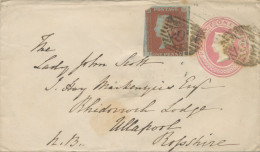 The
Lady John Scott
J. Hay Mackenzie's Esqr
Rhidorroch Lodge
Ullapool
N.B. Rossshire